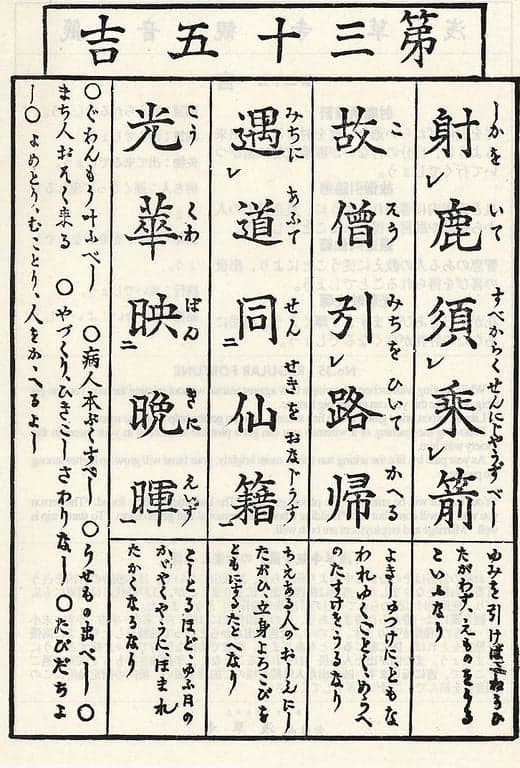 第三十五吉
しかをいてすべからくせんにじやうずべし
射㆑鹿須㆑乗㆑箭
こそうみちをひいてかゑる
故僧引㆑路帰
みちにあふてせんせきをおなじうす
遇㆑道同㆓仙籍㆒
こうくわばんきにゑいず
光華映㆓晩暉㆒
ゆみを引けば
たがわず、えものをうる
こゝろなり
よきしゆつけにともな
われゆくごとくめうへ
のたすけを、うるなり
ちえある人のおしえにし
たがひ、立身よろこびを
ともにするたとへなり
としとるほど、ゆふ日の
かゞやくやうに、ほまれ
たかくなるなり
〇ぐわんもう叶ふべし 〇病人本ぶくすべし 〇うせもの出べし 〇
まち人おそく来る 〇やづくり、ひきこしさわりなし 〇たびだちよ
し 〇よめとり、むことり、人をかゝへるよし